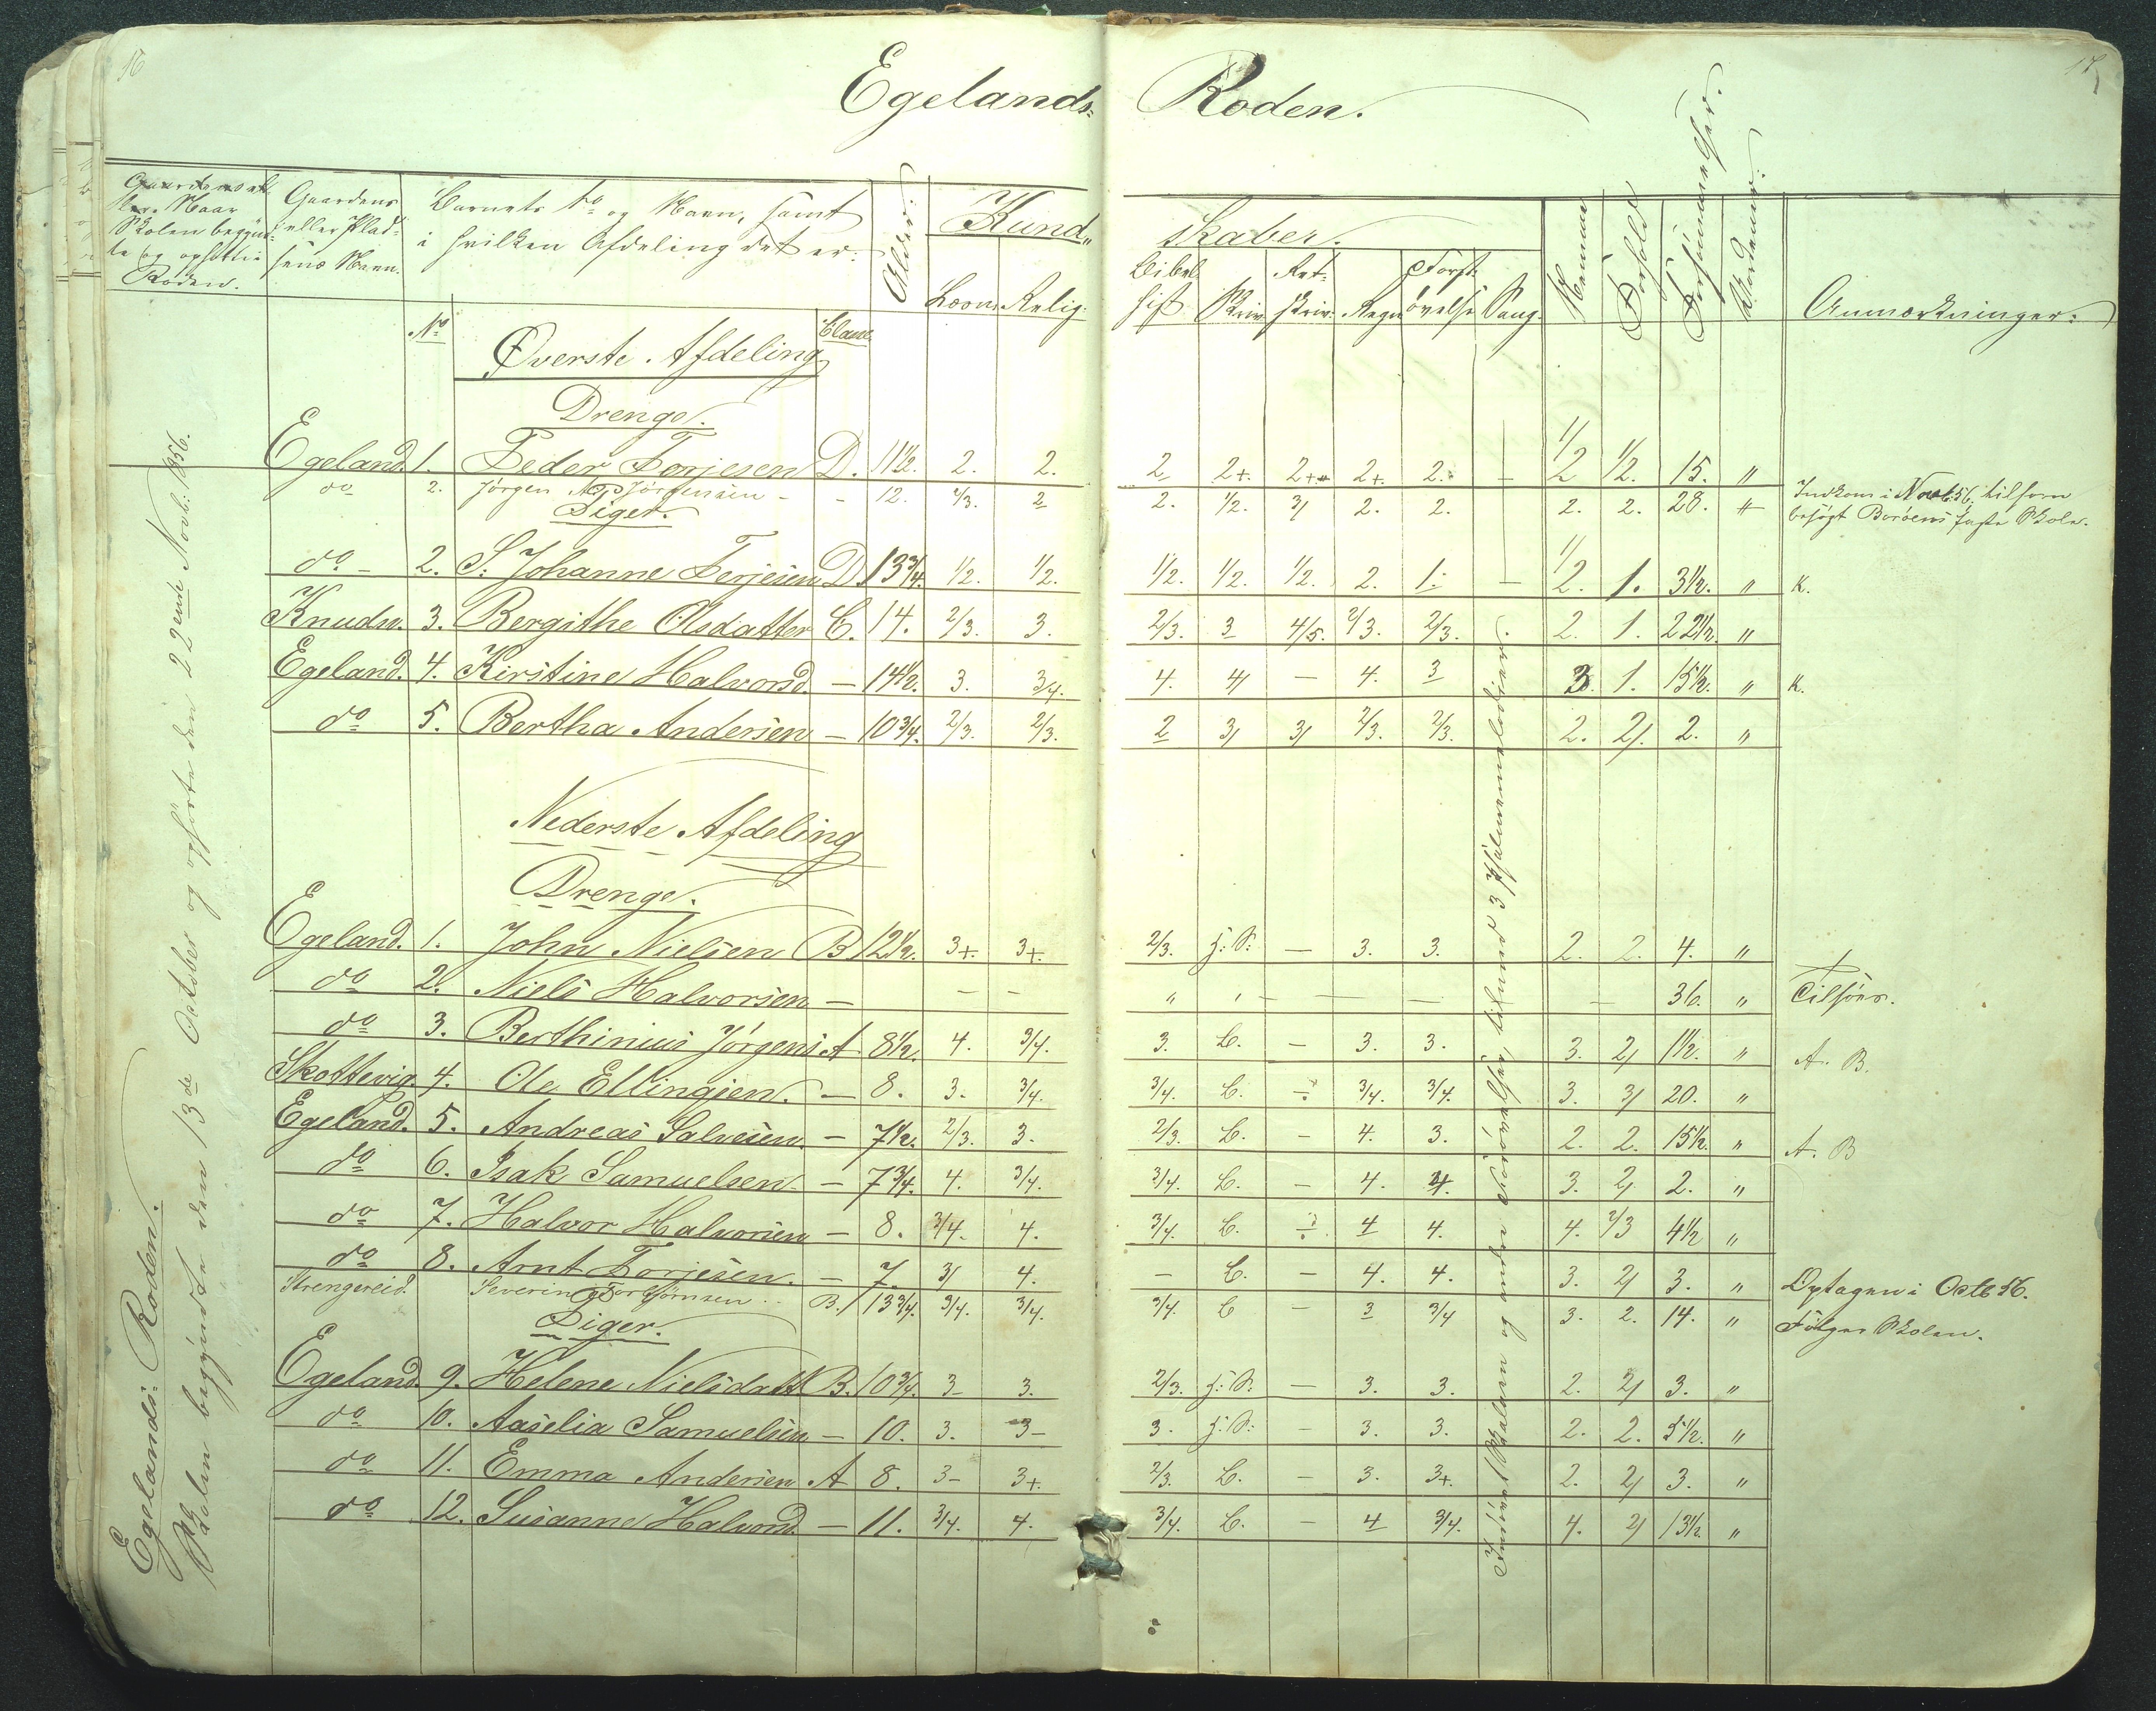 16
17
Egelands-Roden.
Gaardens
eller Plad-
sens Navn.
Skolen begynd-
te og ophørte i
Roden.
Barnets No og Navn, samt
i hvilken Afdeling det er.
Alder.
Kund-
skaber.
Læsn. Relig.
Bibel
hist. Skriv. Ret-
skriv. Regn. Forst.
øvelse Sang.
Nemme
Forhold
Forsømmelser.
Anmærkninger.
No
Øverste Afdeling
Classe
Drenge.
Egeland. 1. Peder Terjesen D. 11 1/2. 2. 2. 2 2+ 2+ 2+ 2. – 1/2 1/2. 15. "
do 2. Jørgen N. Jørgensen – – 12. 2/3. 2 2. 1/2. 3/ 2. 2. 2. 2. 28. " Indkom i Novb. 56, tilforn
besøgt Borøens faste Skole.
Piger.
do – 2. S. Johanne Terjesen D. 13 3/4. 1/2. 1/2. 1/2. 1/2. 1/2. 2. 1. – 1/2. 1. 3 1/2. " K.
Knuds. 3. Bergithe Olsdatter C. 14. 2/3. 3. 2/3. 3 4/5. 2/3. 2/3. 2. 1. 22 1/2. "
Egeland. 4. Kirstine Halvorsd. – 14 1/2. 3. 3/4. 4. 4/ – 4. 3 3. 1. 15 1/2. " K.
do 5. Bertha Andersen – 10 3/4. 2/3. 2/3. 2 3/ 3/ 2/3. 2/3. 2. 2/. 2. "
Nederste Afdeling
Drenge.
Egeland. 1. John Nielsen B 12 1/2. 3+. 3+. 2/3. f: S: – 3. 3. 2. 2. 4. "
do 2. Niels Halvorsen – – – " " – – – – 36. " Tilsøes.
do 3. Berthinius Jørgens. A 8 1/2. 4. 3/4. 3. B. – 3. 3. 3. 2/ 1 1/2. " A. B.
Skottevig. 4. Ole Ellingsen. – 8. 3. 3/4. 3/4. B. ÷ 3/4. 3/4. 3. 3/ 20. "
Egeland. 5. Andreas Salvesen. – 7 1/2. 2/3. 3. 2/3. B. – 4. 3. 2. 2. 15 1/2. " A. B
do 6. Isak Samuelsen – 7 3/4. 4. 3/4. 3/4. B. – 4. 4. 3. 2/ 2. "
do 7. Halvor Halvorsen – 8. 3/4. 4. 3/4. B. ÷ 4 4. 4. 2/3 4 1/2 "
do 8. Arnt Terjesen. – 7. 3/ 4. – B. – 4. 4. 3. 2/ 3. " Optagen i Octb 56.
Strengereid. Severin Tor Sørnsen B. 13 3/4. 3/4. 3/4. 3/4. B – 3 3/4 3. 2. 14. " Følger Skolen.
Piger.
Egeland. 9. Helene Nielsdatt B. 10 3/4. 3– 3. 2/3. f: S: – 3. 3. 2. 2/ 3. "
do 10. Aaselia Samuelsen – 10. 3. 3– 3. f: S: – 3. 3. 2. 2. 5 1/2. "
do 11. Emma Andersen A 8. 3– 3+. 2/3. B. – 3. 3+. 2. 2/ 3. "
do 12. Susanne Halvorsd. – 11. 3/4. 4. 3/4. B. – 4 3/4. 4. 2/ 13 1/2. "
Egelands: Roden.
Skolen begyndte den 13de October og ophørte den 22ende Novb: 1856.